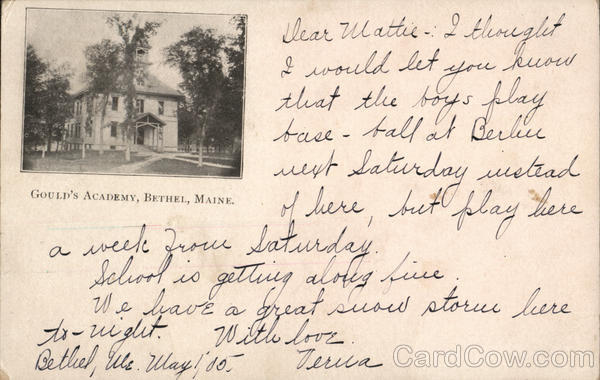 Dear Mattie -: I thought
I would let you know
that the boys play
base - ball at Berlin
next Saturday instead
of here, but play here
GOULD'S ACADEMY, BETHEL, MAINE.
a week from Saturday.
School is getting along fine.
We have a great snow storm here
to-night. With love.
Bethel, Me. May 1, '05. Verna
CardCow.com